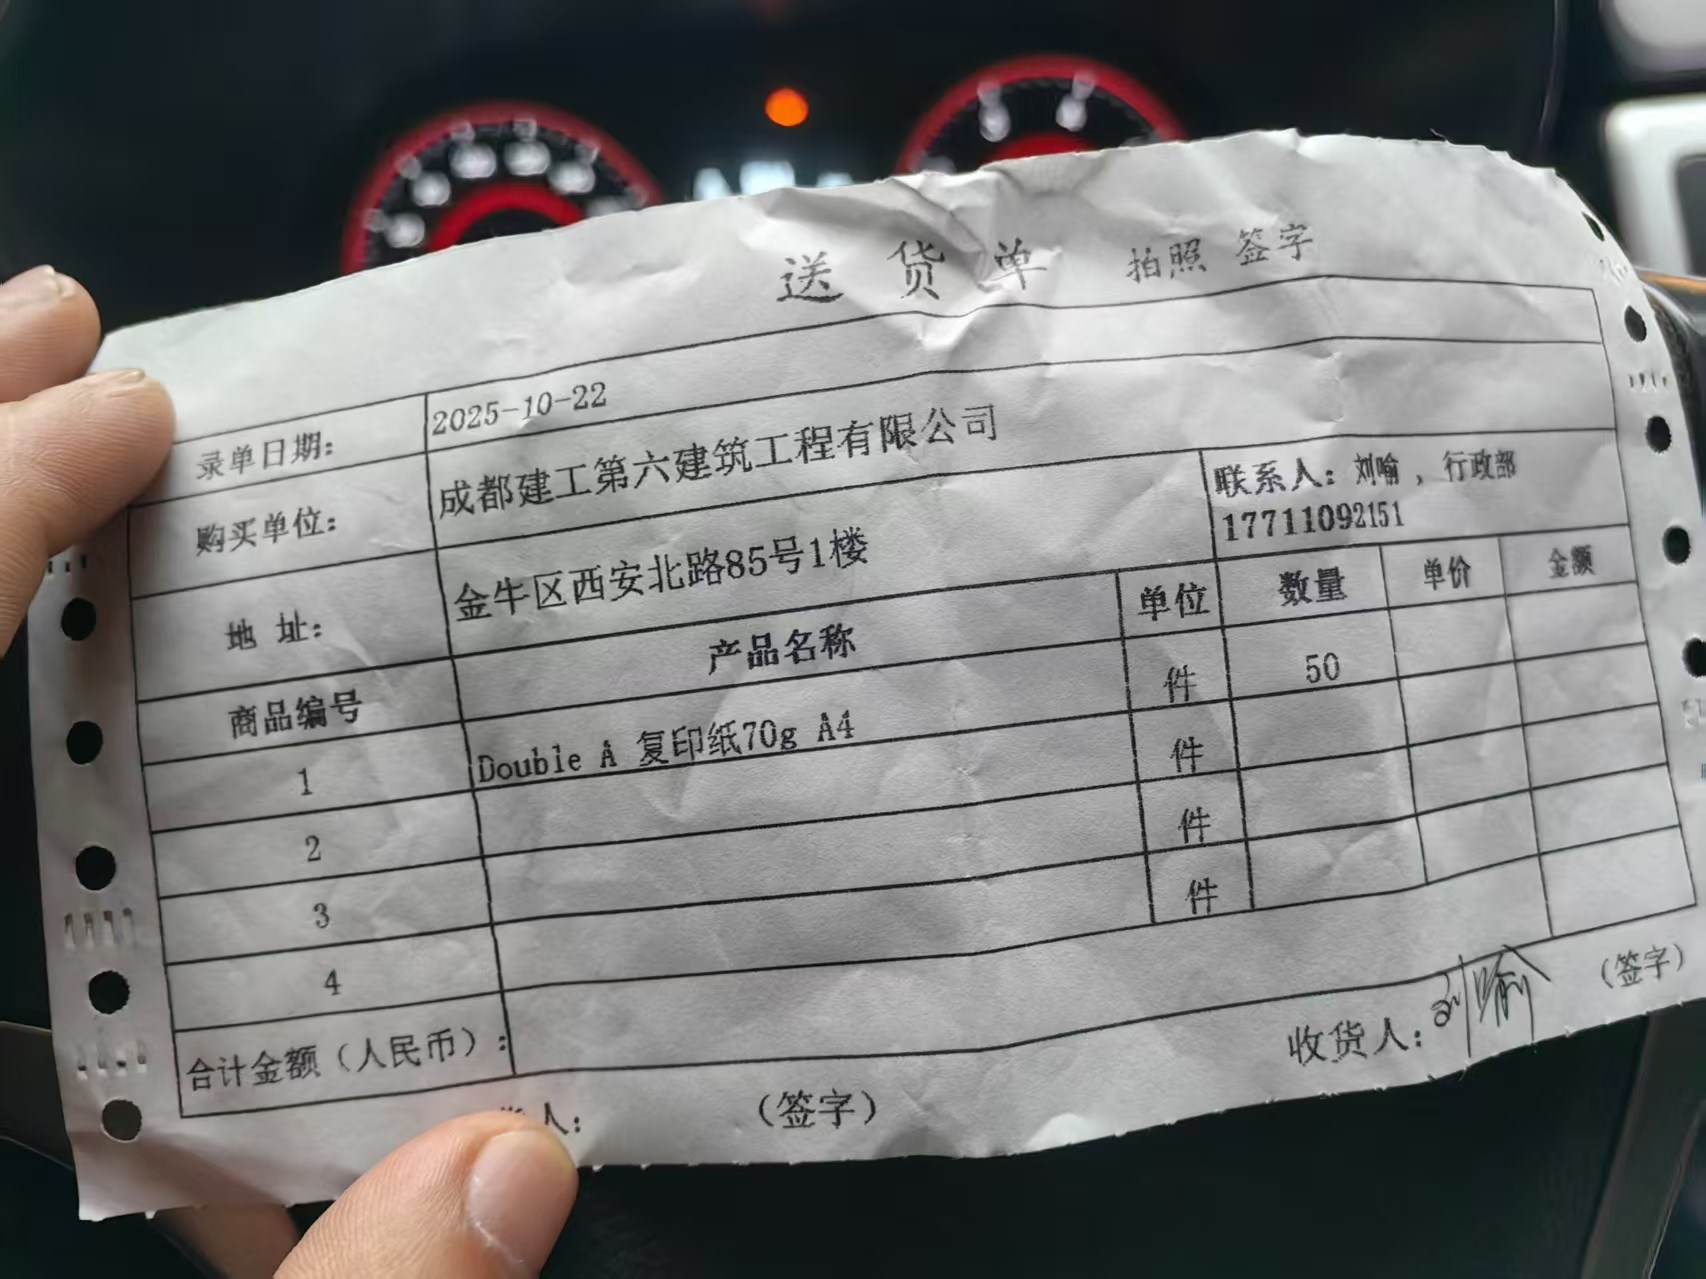 送货单 拍照 签字
录单日期： 2025-10-22
购买单位： 成都建工第六建筑工程有限公司
地 址： 金牛区西安北路85号1楼 联系人：刘喻，行政部
17711092151
商品编号 产品名称 单位 数量 单价 金额
1 Double A 复印纸70g A4 件 50
2 件
3 件
4 件
合计金额（人民币）：
人： （签字） 收货人：刘喻 （签字）